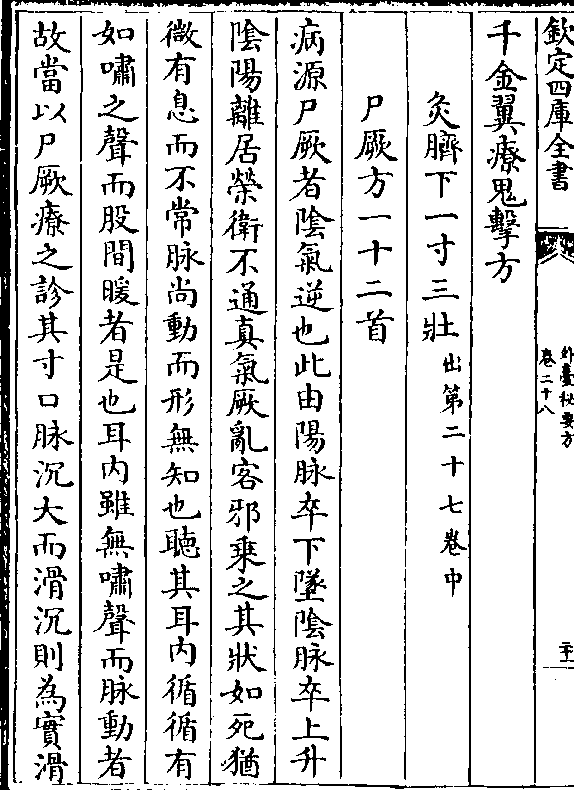 欽定四庫全書
外臺秘要方
卷二十八
千金翼療鬼擊方
灸臍下一寸三壯出第二十七卷中
尸厥方一十二首
病源尸厥者陰氣逆也此由陽脉卒下墜陰脉卒上升
陰陽離居榮衛不通真氣厥亂客邪乗之其狀如死猶
微有息而不常脉尚動而形無知也聴其耳内循循有
如嘯之聲而股間暖者是也耳内雖無嘯聲而脉動者
故當以尸厥療之診其寸口脉沉大而滑沉則為實滑